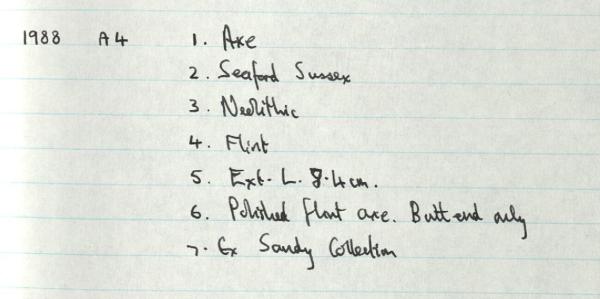 1988 A4 1. Axe
2. Seaford Sussex
3. Neolithic
4. Flint
5. Ext. L. 8.4cm.
6. Polished flint axe. Butt end only
7. Ex Sandy Collection